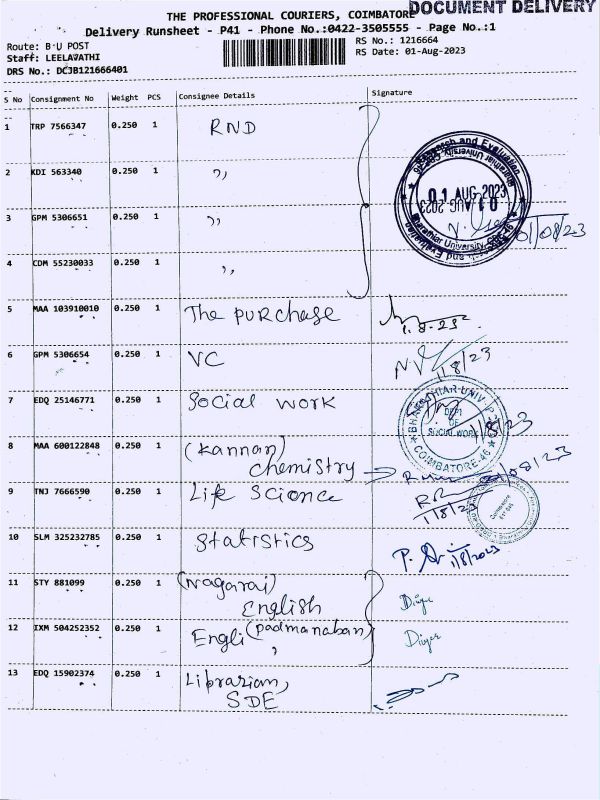 DOCUMENT DELIVERY
THE PROFESSIONAL COURIERS, COIMBATORE
Delivery Runsheet - P41 - Phone No.:0422-3505555 - Page No.:1
Route: B U POST
RS No.: 1216664
Staff: LEELAVATHI
RS Date: 01-Aug-2023
DRS No.: DCJB121666401
S No Consignment No Weight PCS Consignee Details Signature
1 TRP 7566347 0.250 1 RND
2 KDI 563340 0.250 1 ,,
3 GPM 5306651 0.250 1 ,,
01 AUG 2023
01/08/23
4 CDM 55230033 0.250 1 ,,
5 MAA 103910010 0.250 1 The purchase
1.8.23
6 GPM 5306654 0.250 1 VC
1/8/23
7 EDQ 25146771 0.250 1 Social work
BHARATHIAR UNIV
DEPT
OF
SOCIAL WORK
COIMBATORE-46
1/8/23
8 MAA 600122848 0.250 1 (Kannan)
chemistry
01/08/23
9 TNJ 7666590 0.250 1 Life Science
1/8/23
10 SLM 325232785 0.250 1 Statistics
1/8/2023
11 STY 881099 0.250 1 (Nagaraj)
English
12 IXM 504252352 0.250 1 Engli (padmanaban)
,
13 EDQ 15902374 0.250 1 Librarian,
SDE